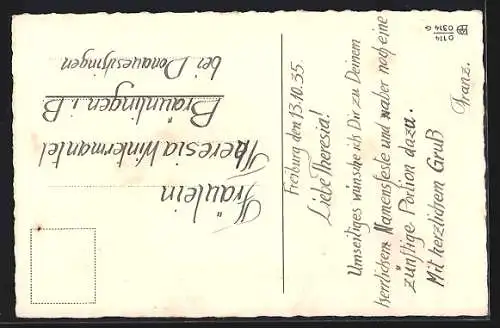 Freiburg den 13.10.35
Liebe Theresia!
Umseitiges wünsche ich Dir zu Deinem
herrlichem Namensfeste und naber noch eine
zünftige Portion dazu.
Mit herzlichem Gruß
Franz.
Fräulein
Theresia Wintermantel
Bräunlingen i. B.
bei Donauesch̄ingen
D 114
0314 G